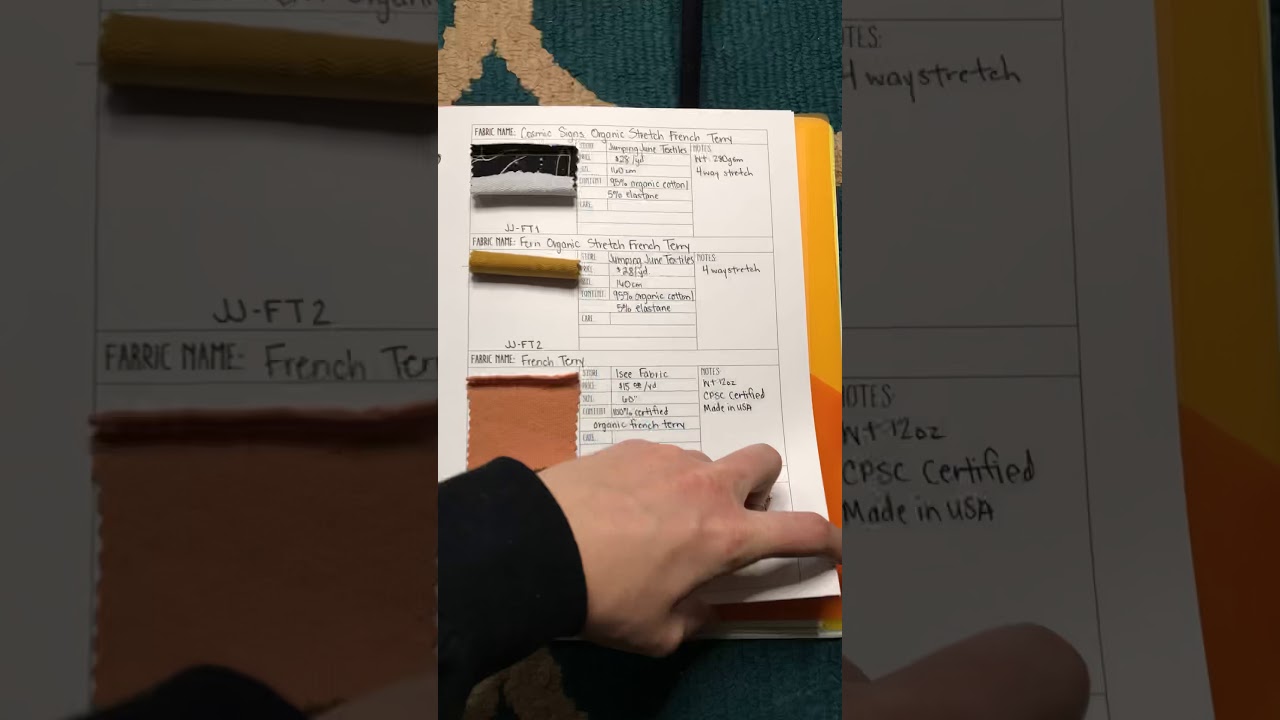 FABRIC NAME: Cosmic Signs Organic Stretch French Terry
STORE Jumping June Textiles
$28/yd
160 cm
CONTENT 95% organic cotton
5% elastane
CARE
NOTES
Wt. 280gsm
4 way stretch
JJ-FT1
FABRIC NAME: Fern Organic Stretch French Terry
STORE Jumping June Textiles
PRICE $28/yd
SIZE 140cm
CONTENT 95% organic cotton
5% elastane
CARE
NOTES:
4 way stretch
JJ-FT2
FABRIC NAME: French Terry
STORE Isee Fabric
PRICE $15 /yd
SIZE 60"
CONTENT 100% certified
organic french terry
CARE
NOTES
Wt 12oz
CPSC Certified
Made in USA
JJ-FT2
FABRIC NAME: French Ter
OTES:
4 way stretch
NOTES:
Wt 12oz
CPSC Certified
Made in USA